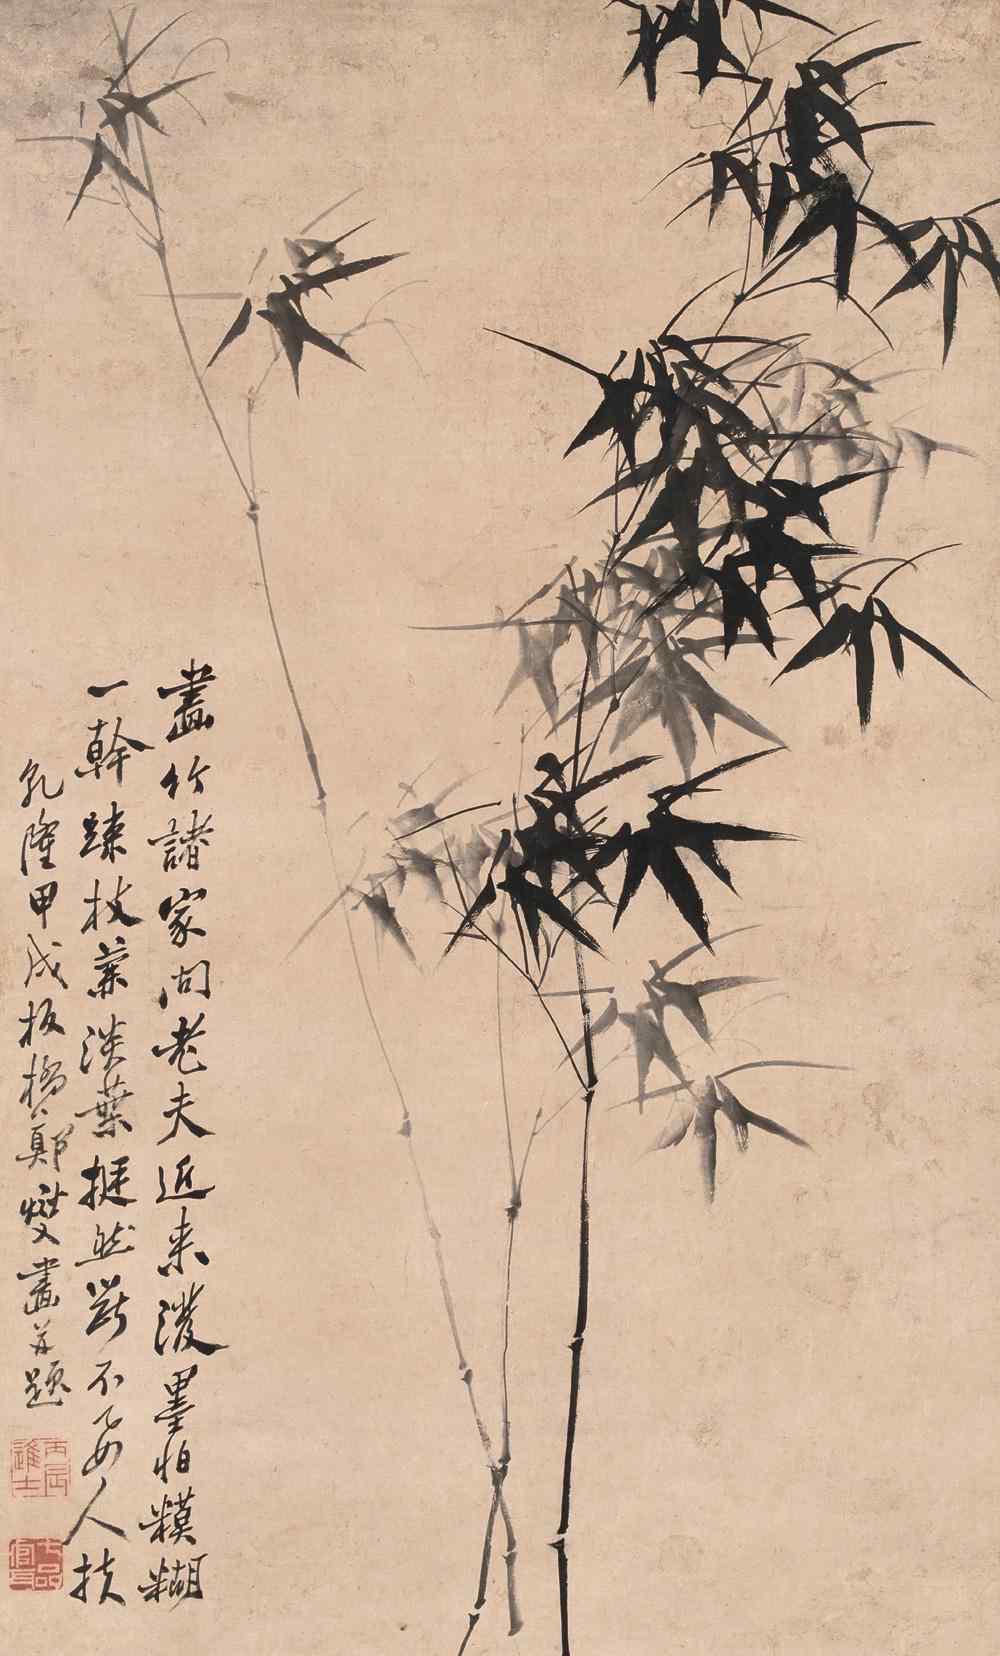 畫竹諸家問老夫近來潑墨怕糢糊
一幹疎枝兼淡葉挺然斷不要人扶
乾隆甲戌板橋鄭燮畫并題
丙辰進士
七品官耳